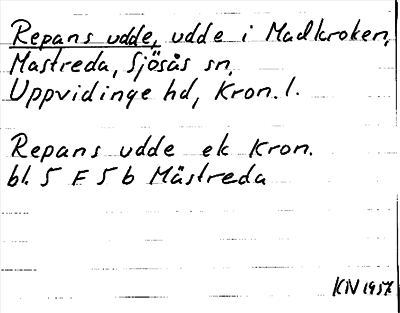 Repans udde, udde i Madkroken,
Mastreda, Sjösås sn,
Uppvidinge hd, Kron. l.
Repans udde ek Kron.
bl. 5 F 5 b Mästreda
KN 1957